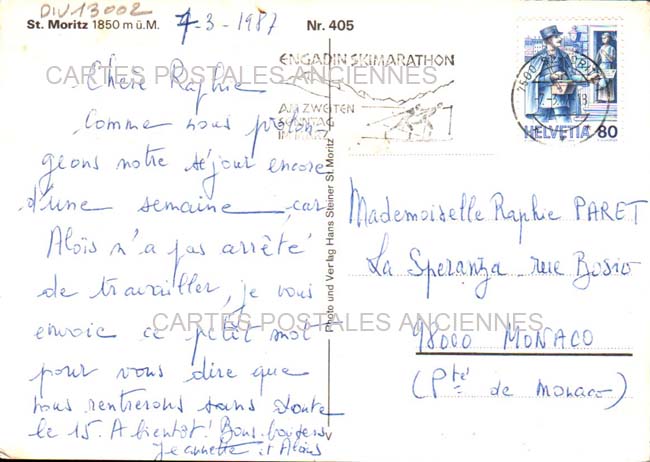 DIV 13002
St. Moritz 1850 m ü.M.
7-3-1987
Nr. 405
ENGADIN SKIMARATHON
AM ZWEITEN
SONNTAG
IM MÄRZ
7500 ST. MORITZ
HELVETIA 80
CARTES POSTALES ANCIENNES
Chère Raphie
Comme nous prolon-
geons notre séjour encore
d'une semaine, car
Aloïs n'a pas arrêté
de travailler, je vous
envoie ce petit mot
pour vous dire que
nous rentrerons sans doute
le 15. A bientôt! Bons baisers
Jeannette et Aloïs
Photo und Verlag Hans Steiner St. Moritz
Mademoiselle Raphie PARET
La Speranza - rue Bosio
98000 MONACO
(Pté de Monaco)
CARTES POSTALES ANCIENNES